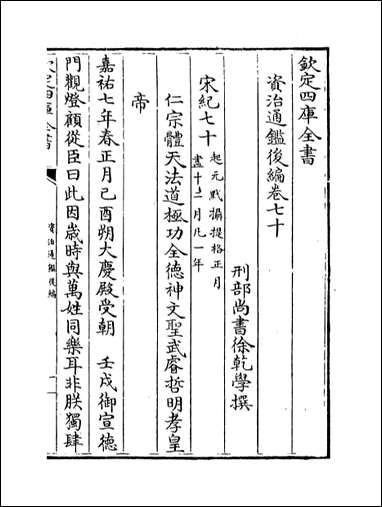 欽定四庫全書
資治通鑑後編卷七十
刑部尚書徐乾學撰
宋紀七十
起元黓攝提格正月
盡十二月凡一年
仁宗體天法道極功全德神文聖武睿哲明孝皇
帝
嘉祐七年春正月己酉朔大慶殿受朝 壬戌御宣德
門觀燈顧從臣曰此因歲時與萬姓同樂耳非朕獨肆
欽定四庫全書
資治通鑑後編
一